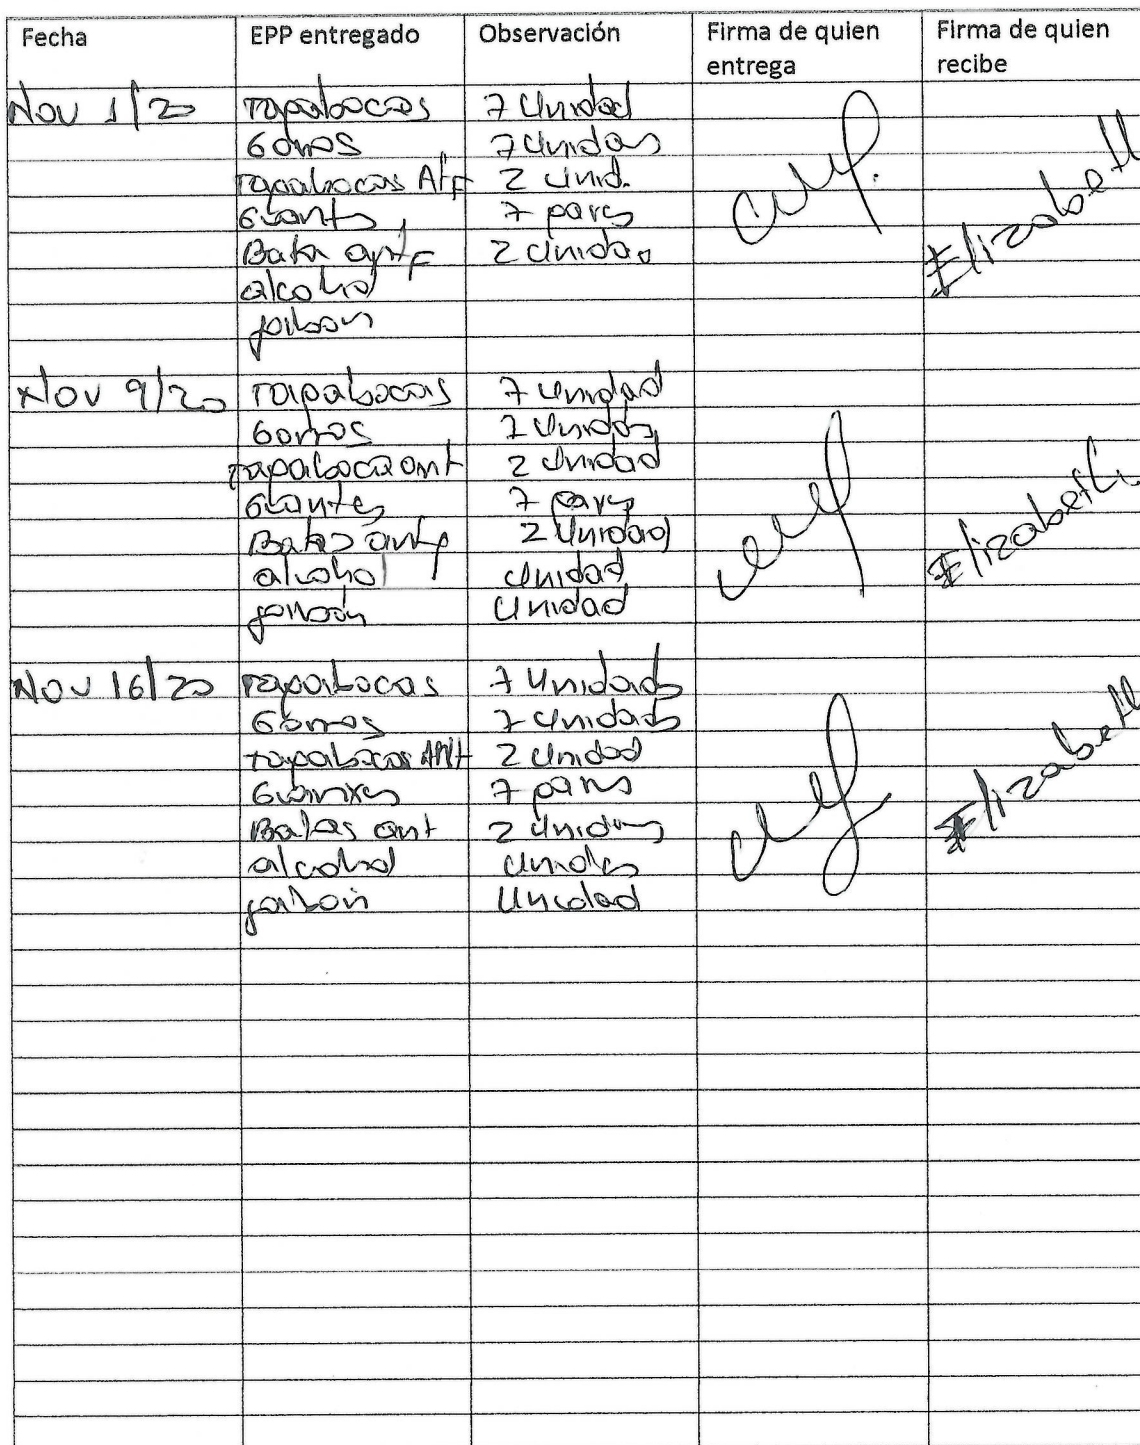 Fecha EPP entregado Observación Firma de quien entrega Firma de quien recibe
Nov 1/20 Tapabocas 7 Unidad
Gorros 7 Unidas
Tapabocas 2 Unid.
Guants 7 pares
Bata 2 Unidas
alcohol
jabon
Elizabeth
Nov 9/20 Tapabocas 7 Unidad
Gorros 7 Unidas
Tapaboca ant 2 Unidad
Guantes 7 pares
Batas antf 2 Unidad
alcohol Unidad
jabon Unidad
Elizabeth
Nov 16/20 Tapabocas 7 Unidads
Gorros 7 Unidads
tapabocas Ant 2 Unidad
Guantes 7 pares
Batas ant 2 Unidas
alcohol
jabon Unidad
Elizabeth